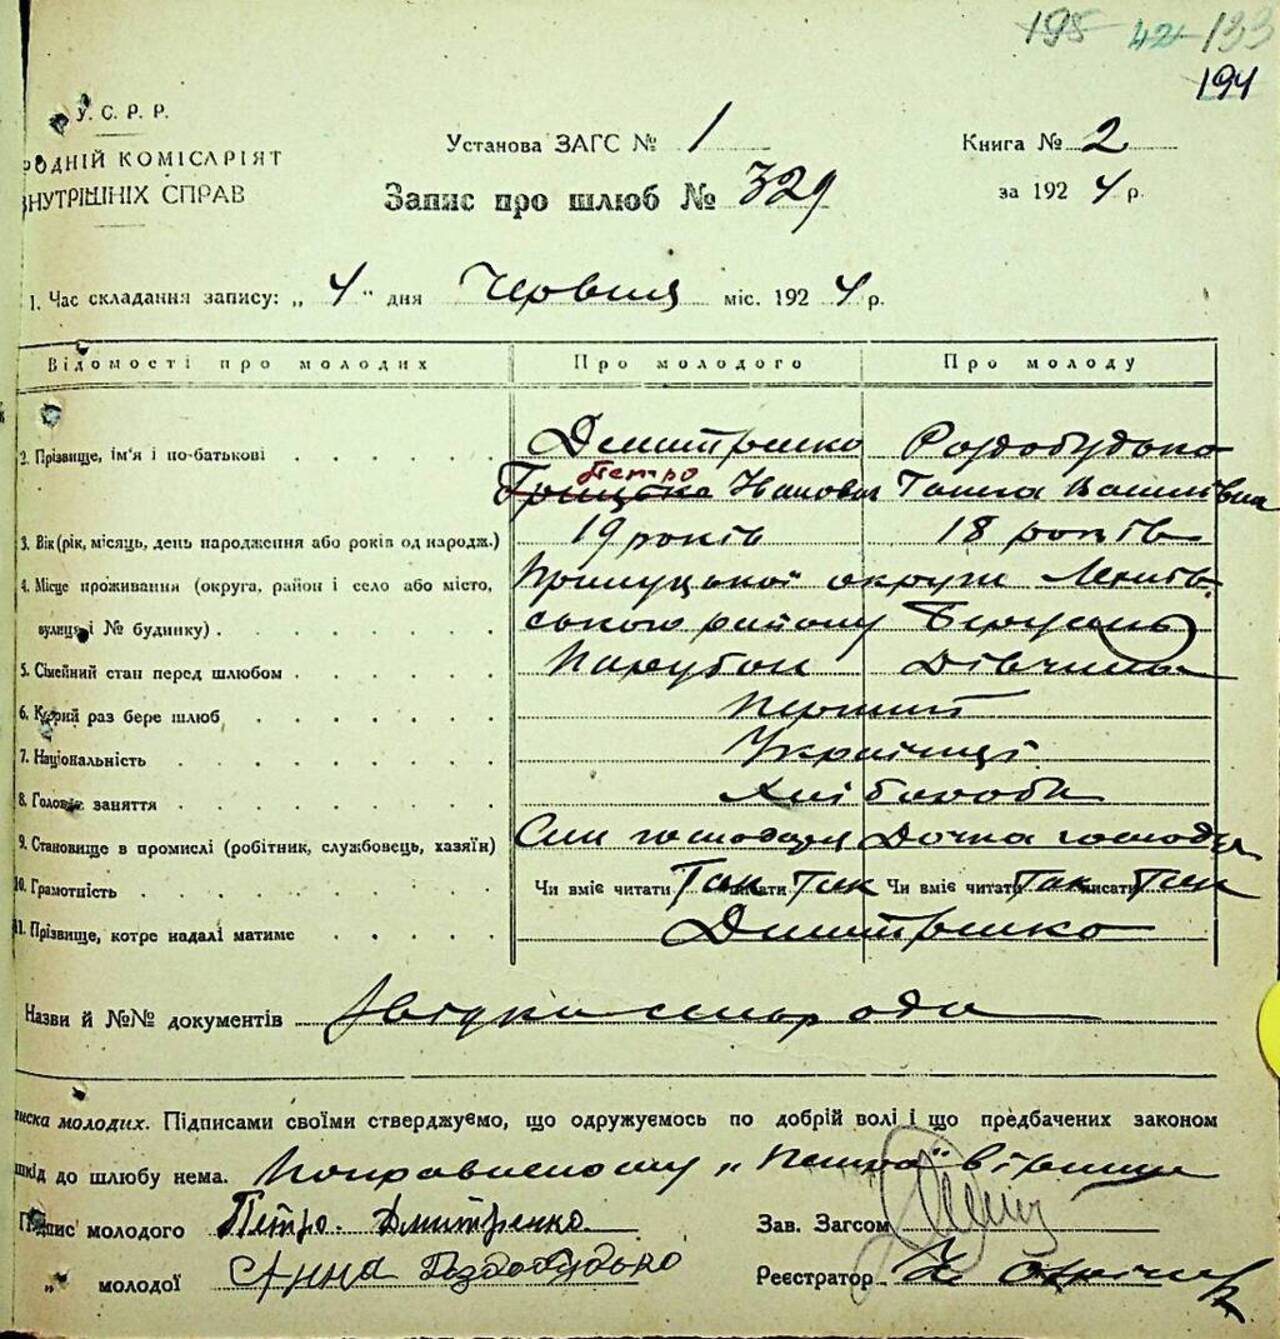 195 42 133
194
У. С. Р. Р.
РОДНІЙ КОМІСАРІЯТ
ВНУТРІШНІХ СПРАВ
Установа ЗАГС № 1
Книга № 2
Запис про шлюб № 329
за 1924 р.
1. Час складання запису: „ 4 " дня Червня міс. 1924 р.
Відомості про молодих Про молодого Про молоду
2. Прізвище, ім'я і по-батькові . . . . . Дмитренко Роздобудько
Петро
Грицько Іванович Ганна Василівна
3. Вік (рік, місяць, день народження або років од народж.) 19 років 18 років
4. Місце проживання (округа, район і село або місто, Прилуцької округи
вулиця і № будинку) . . . . . . . ського району
5. Сімейний стан перед шлюбом . . . . . Парубок Дівчина
6. Котрий раз бере шлюб . . . . . . Перший
7. Національність . . . . . . . . Українці
8. Головне заняття . . . . . . . . Хлібороби
9. Становище в промислі (робітник, службовець, хазяїн) Син господаря Дочка господаря
10. Грамотність . . . . . . . . Чи вміє читати Так писати Так Чи вміє читати Так писати Так
11. Прізвище, котре надалі матиме . . . . . Дмитренко
Назви й №№ документів
писка молодих. Підписами своїми стверджуємо, що одружуємось по добрій волі і що предбачених законом
шкід до шлюбу нема. Поправленому „Петро" вірити
Підпис молодого Петро. Дмитренко Зав. Загсом
„ молодої Анна Роздобудько Реєстратор